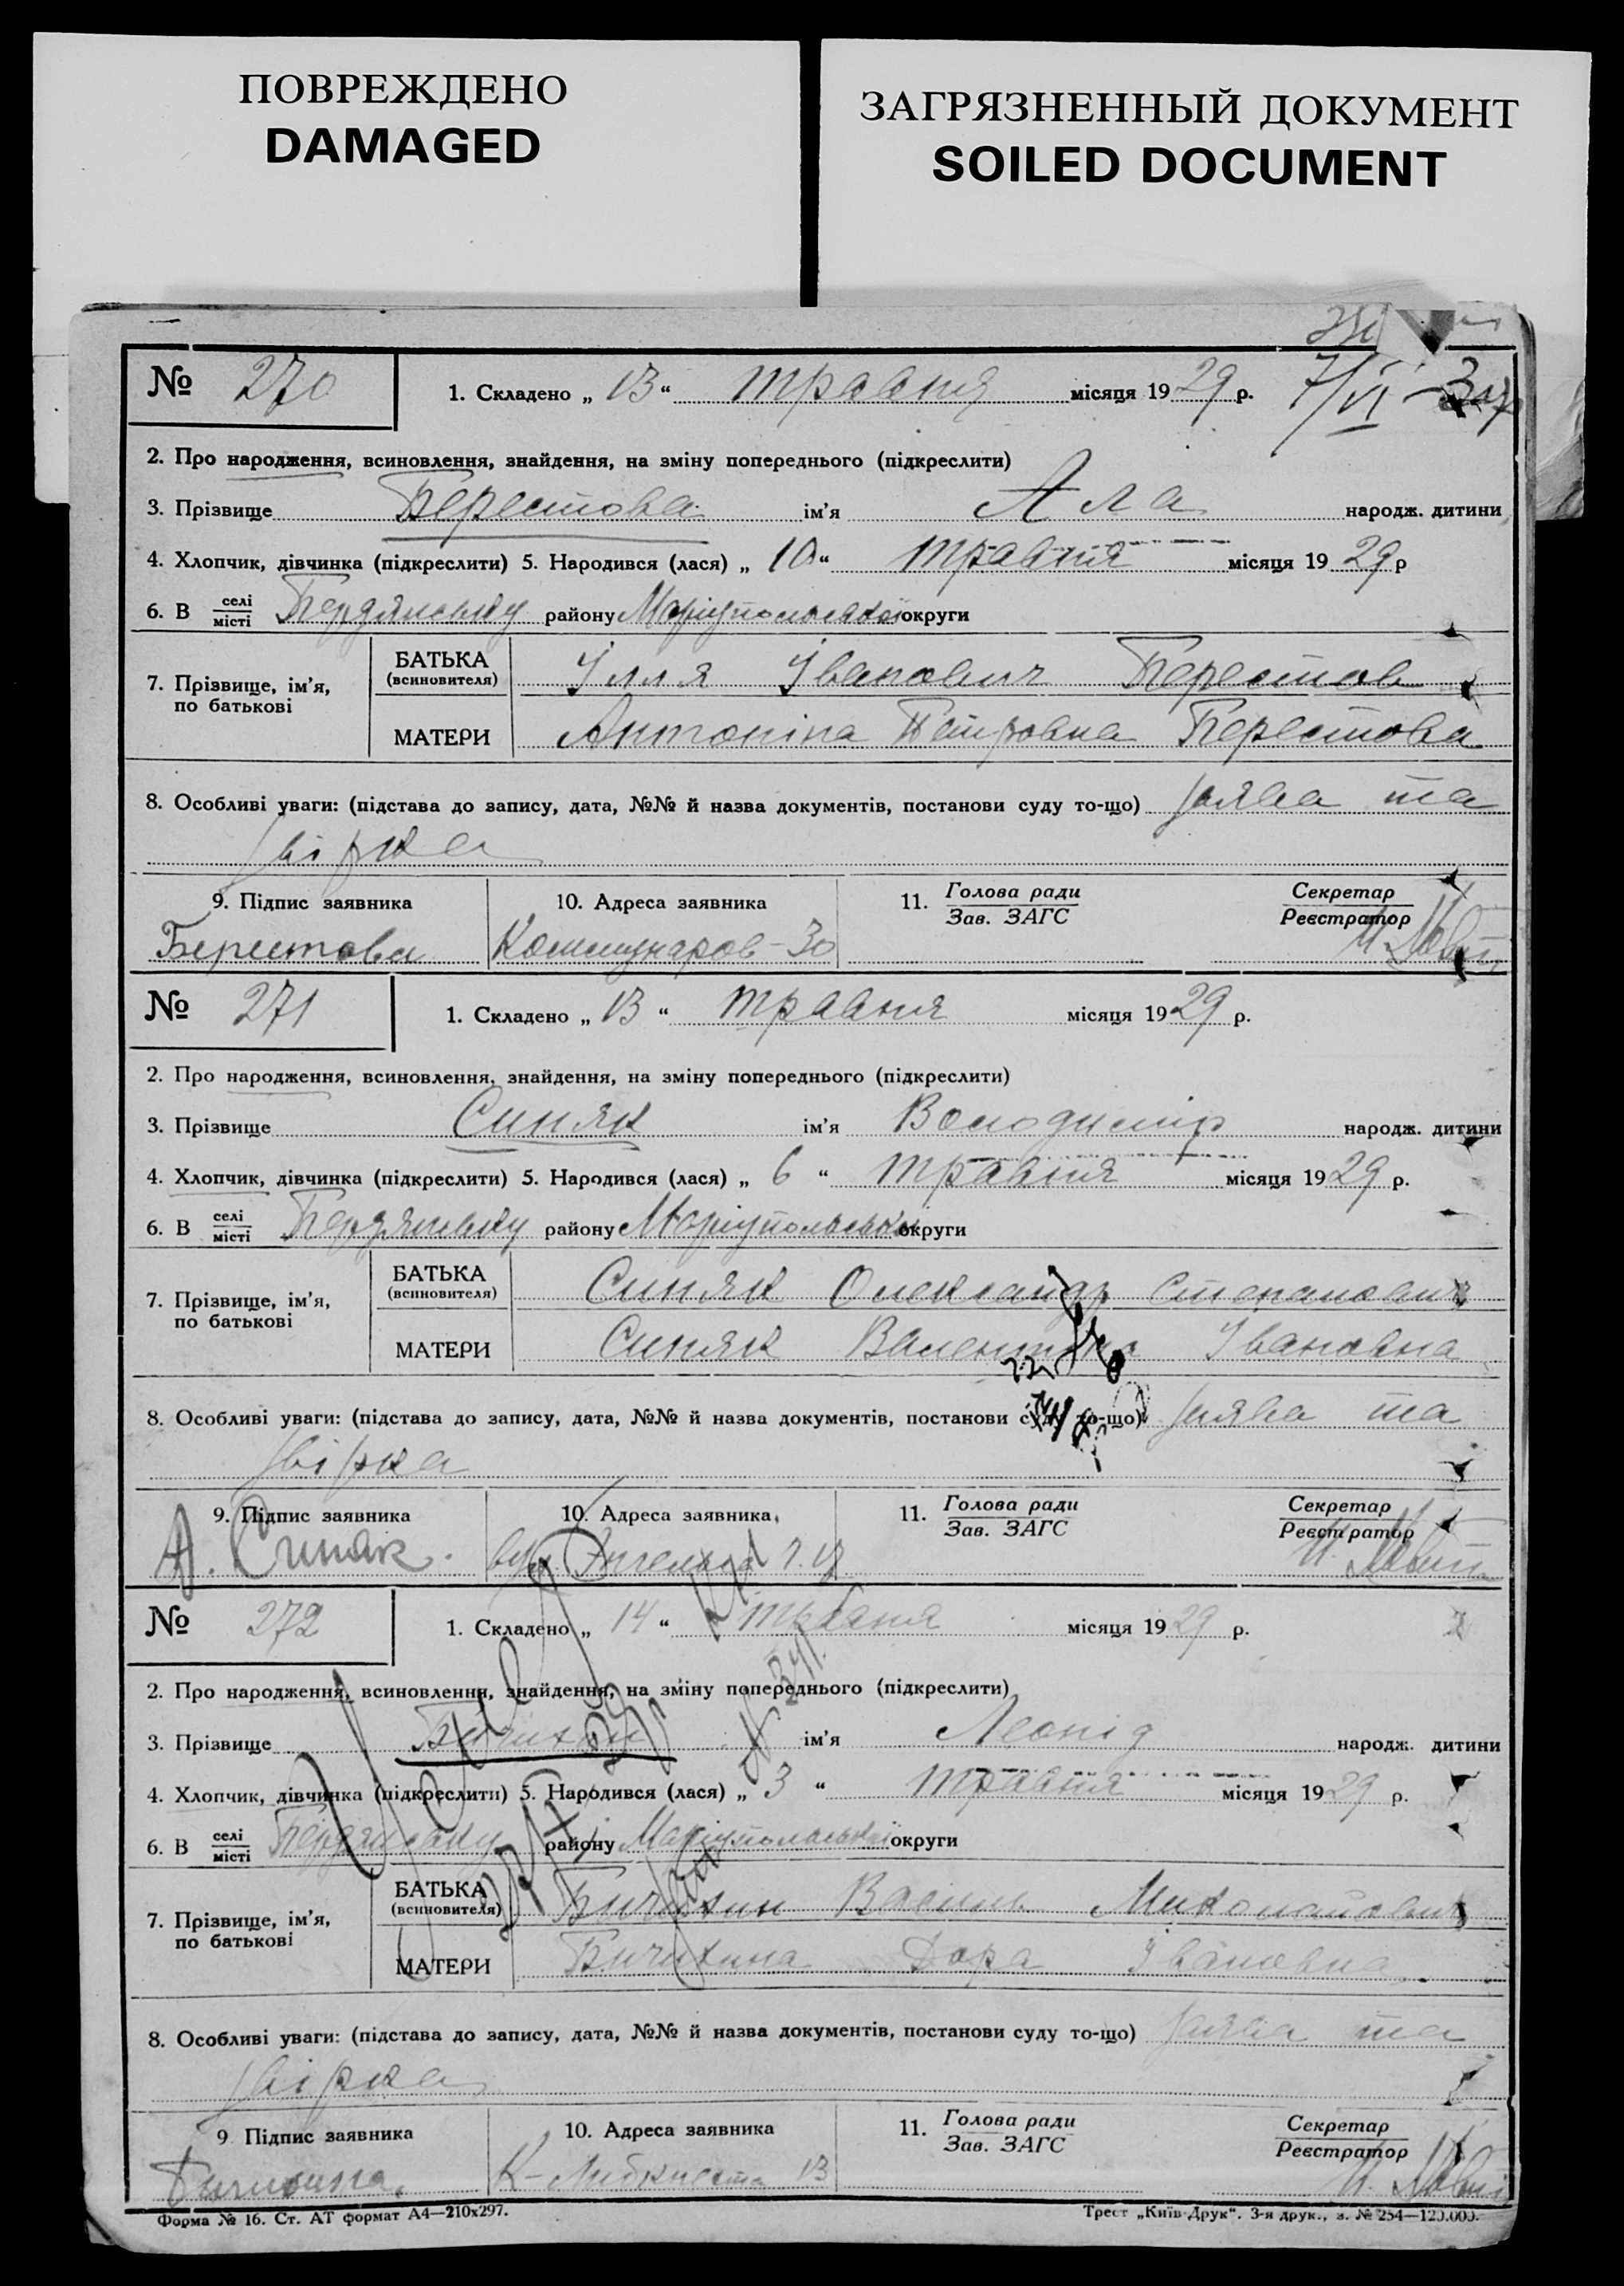 ПОВРЕЖДЕНО
DAMAGED
ЗАГРЯЗНЕННЫЙ ДОКУМЕНТ
SOILED DOCUMENT
№ 270 1. Складено „ 13 “ травня місяця 1929 р. 7/VI
2. Про народження, всиновлення, знайдення, на зміну попереднього (підкреслити)
3. Прізвище Берестова ім'я Ала народж. дитини
4. Хлопчик, дівчинка (підкреслити) 5. Народився (лася) „ 10 “ травня місяця 1929 р
6. В селі місті Бердянську району Маріупольської округи
7. Прізвище, ім'я, по батькові
БАТЬКА (всиновителя) Ілля Іванович Берестов
МАТЕРИ Антоніна Петровна Берестова
8. Особливі уваги: (підстава до запису, дата, №№ й назва документів, постанови суду то-що) заява та
звірка
9. Підпис заявника 10. Адреса заявника 11. Голова ради Зав. ЗАГС Секретар Реєстратор
Берестова Коммунаров-30
№ 271 1. Складено „ 13 “ травня місяця 1929 р.
2. Про народження, всиновлення, знайдення, на зміну попереднього (підкреслити)
3. Прізвище Синяк ім'я Володимір народж. дитини
4. Хлопчик, дівчинка (підкреслити) 5. Народився (лася) „ 6 “ травня місяця 1929 р.
6. В селі місті Бердянську району Маріупольської округи
7. Прізвище, ім'я, по батькові
БАТЬКА (всиновителя) Синяк Олександр Степанович
МАТЕРИ Синяк Валентина Івановна
8. Особливі уваги: (підстава до запису, дата, №№ й назва документів, постанови суду то-що) заява та
звірка
9. Підпис заявника 10. Адреса заявника 11. Голова ради Зав. ЗАГС Секретар Реєстратор
А. Синяк. вул. Энгельса
№ 272 1. Складено „ 14 “ травня місяця 1929 р.
2. Про народження, всиновлення, знайдення, на зміну попереднього (підкреслити)
3. Прізвище Бичихин ім'я Леонід народж. дитини
4. Хлопчик, дівчинка (підкреслити) 5. Народився (лася) „ 3 “ травня місяця 1929 р.
6. В селі місті Бердянську району Маріупольської округи
7. Прізвище, ім'я, по батькові
БАТЬКА (всиновителя) Бичихин Василь Миколайович
МАТЕРИ Бичихина Дора Івановна
8. Особливі уваги: (підстава до запису, дата, №№ й назва документів, постанови суду то-що) заява та
звірка
9 Підпис заявника 10. Адреса заявника 11. Голова ради Зав. ЗАГС Секретар Реєстратор
Бичихина К-Либкнехта 13
Форма № 16. Ст. АТ формат А4—210х297. Трест „Київ-Друк“. 3-я друк., з. № 254—120.000.